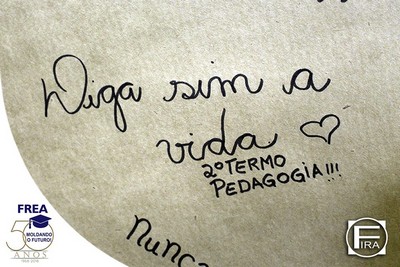 Diga sim a
vida
2º TERMO
PEDAGOGIA!!!
Nunca
FREA
50
MOLDANDO
O FUTURO!
ANOS
FIRA